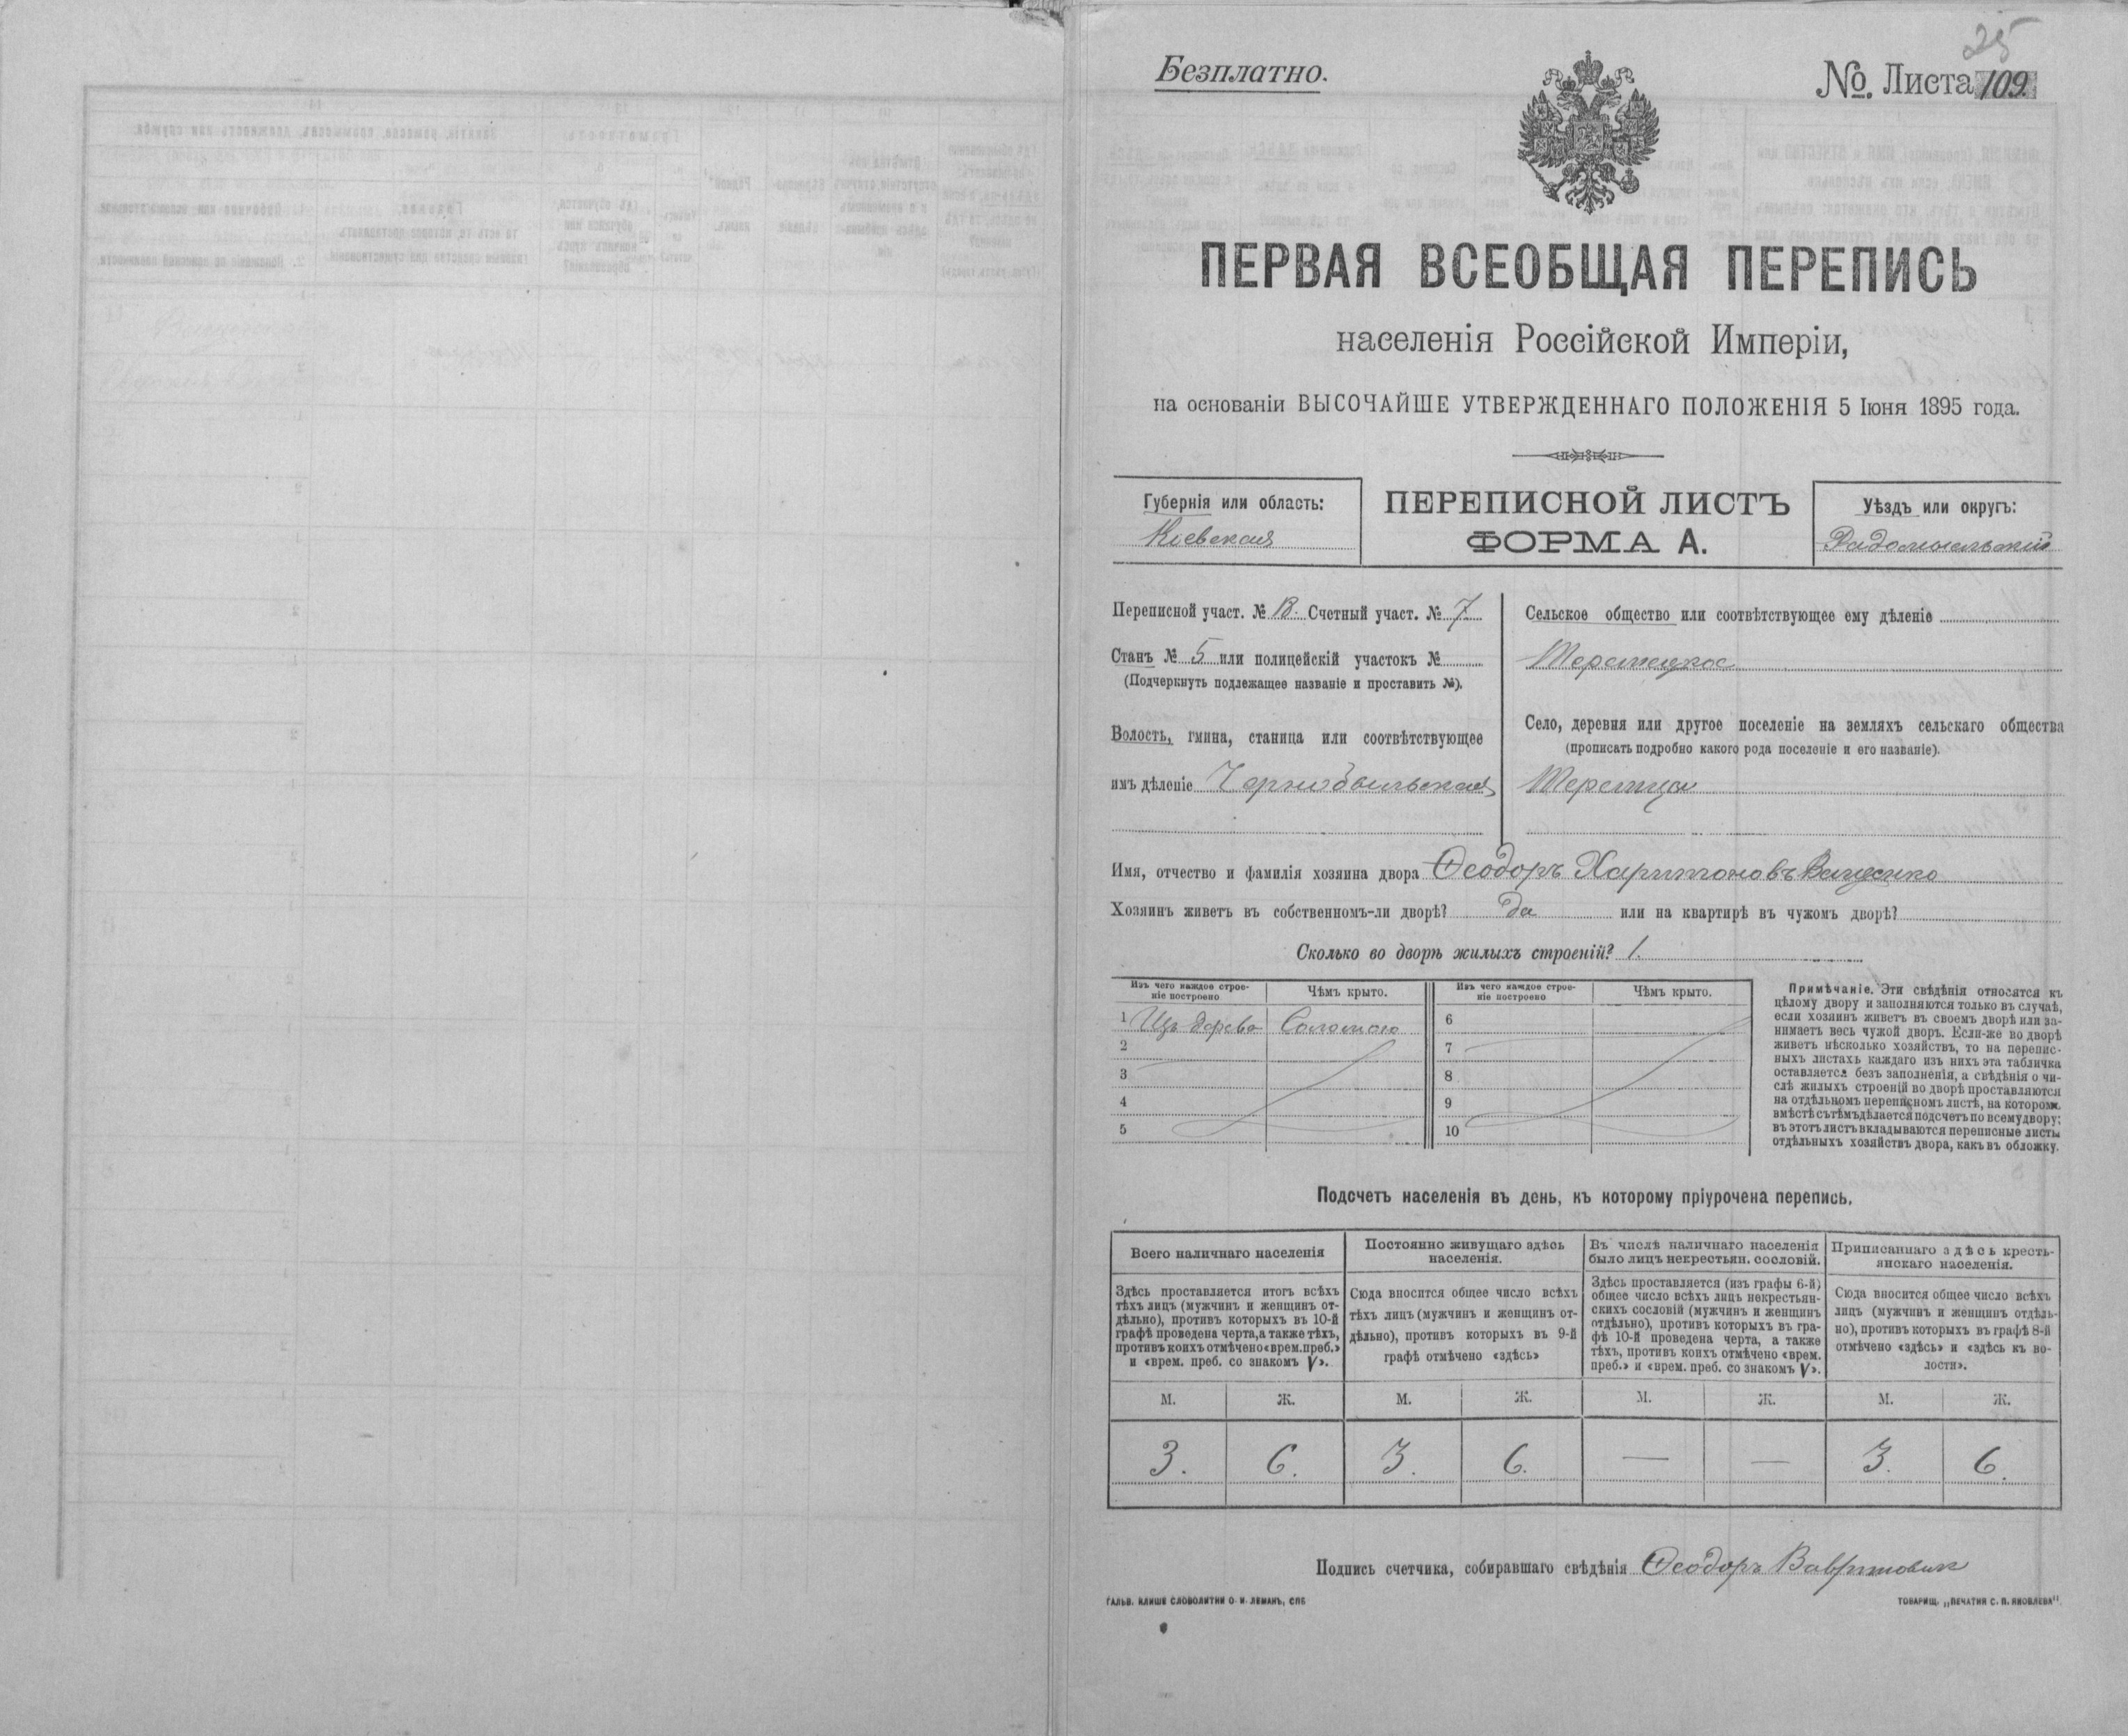 25
Безплатно.
№. Листа 109.
ПЕРВАЯ ВСЕОБЩАЯ ПЕРЕПИСЬ
населенія Россійской Имперіи,
на основаніи ВЫСОЧАЙШЕ УТВЕРЖДЕННАГО ПОЛОЖЕНІЯ 5 Іюня 1895 года.
Губернія или область:
Кіевская
ПЕРЕПИСНОЙ ЛИСТЪ
ФОРМА А.
Уѣздъ или округъ:
Радомысльскій
Переписной участ. № Счетный участ. № 7
Станъ № 5 или полицейскій участокъ №
(Подчеркнуть подлежащее названіе и проставить №).
Волость, гмина, станица или соотвѣтствующее
имъ дѣленіе Чернобыльская
Сельское общество или соотвѣтствующее ему дѣленіе
Теремецкое
Село, деревня или другое поселеніе на земляхъ сельскаго общества
(прописать подробно какого рода поселеніе и его названіе).
Теремцы
Имя, отчество и фамилія хозяина двора Ѳеодоръ Харитоновъ Ващенко
Хозяинъ живетъ въ собственномъ-ли дворѣ? да или на квартирѣ въ чужомъ дворѣ?
Сколько во дворѣ жилыхъ строеній? 1.
Изъ чего каждое строеніе построено
Чѣмъ крыто.
Изъ чего каждое строеніе построено
Чѣмъ крыто.
1 Изъ дерева Соломою
2
3
4
5
6
7
8
9
10
Примѣчаніе. Эти свѣдѣнія относятся къ
цѣлому двору и заполняются только въ случаѣ,
если хозяинъ живетъ въ своемъ дворѣ или за-
нимаетъ весь чужой дворъ. Если-же во дворѣ
живетъ нѣсколько хозяйствъ, то на перепис-
ныхъ листахъ каждаго изъ нихъ эта табличка
оставляется безъ заполненія, а свѣдѣнія о чи-
слѣ жилыхъ строеній во дворѣ проставляются
на отдѣльномъ переписномъ листѣ, на которомъ
вмѣстѣ съ тѣмъ дѣлается подсчетъ по всему двору;
въ этотъ листъ вкладываются переписные листы
отдѣльныхъ хозяйствъ двора, какъ въ обложку.
Подсчетъ населенія въ день, къ которому пріурочена перепись.
Всего наличнаго населенія
Здѣсь проставляется итогъ всѣхъ
тѣхъ лицъ (мужчинъ и женщинъ от-
дѣльно), противъ которыхъ въ 10-й
графѣ проведена черта, а также тѣхъ,
противъ коихъ отмѣчено «врем. преб.»
и «врем. преб. со знакомъ V».
Постоянно живущаго здѣсь
населенія.
Сюда вносится общее число всѣхъ
тѣхъ лицъ (мужчинъ и женщинъ от-
дѣльно), противъ которыхъ въ 9-й
графѣ отмѣчено «здѣсь»
Въ числѣ наличнаго населенія
было лицъ некрестьян. сословій.
Здѣсь проставляется (изъ графы 6-й)
общее число всѣхъ лицъ некрестьян-
скихъ сословій (мужчинъ и женщинъ
отдѣльно), противъ которыхъ въ гра-
фѣ 10-й проведена черта, а также
тѣхъ, противъ коихъ отмѣчено «врем.
преб.» и «врем. преб. со знакомъ V».
Приписаннаго здѣсь кресть-
янскаго населенія.
Сюда вносится общее число всѣхъ
лицъ (мужчинъ и женщинъ отдѣль-
но), противъ которыхъ въ графѣ 8-й
отмѣчено «здѣсь» и «здѣсь къ во-
лости».
М. Ж. М. Ж. М. Ж. М. Ж.
3. 6. 3. 6. — — 3. 6.
Подпись счетчика, собиравшаго свѣдѣнія Ѳеодоръ
ГАЛЬВ. КЛИШЕ СЛОВОЛИТНИ О. И. ЛЕМАНЪ, СПБ
ТОВАРИЩ. „ПЕЧАТНЯ С. П. ЯКОВЛЕВА"